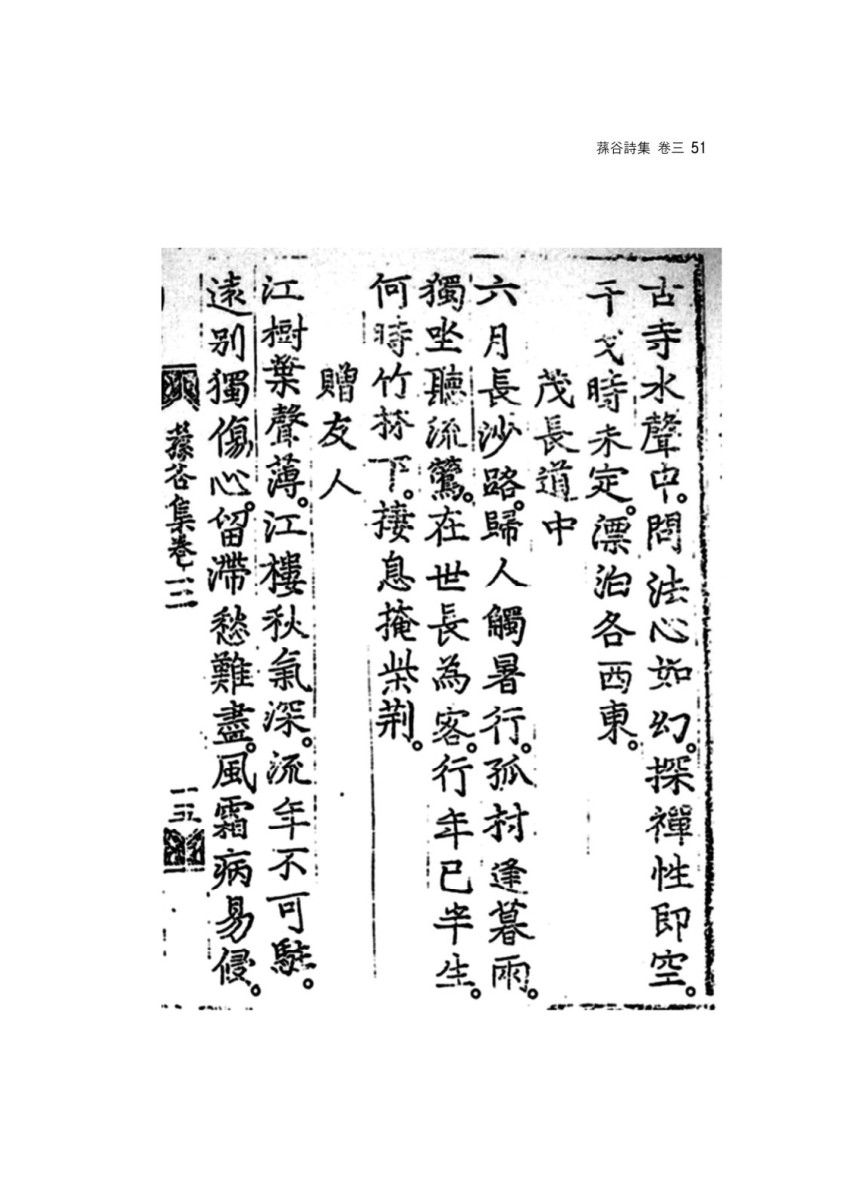 蓀谷詩集 卷三 51
古寺水聲中。問法心如幻。探禪性即空。
干戈時未定。漂泊各西東。
茂長道中
六月長沙路。歸人觸暑行。孤村逢暮雨。
獨坐聽流鶯。在世長為客。行年已半生。
何時竹林下。棲息掩柴荆。
贈友人
江樹葉聲薄。江樓秋氣深。流年不可駐。
遠別獨傷心。留滯愁難盡。風霜病易侵。
蓀谷集卷三
十五